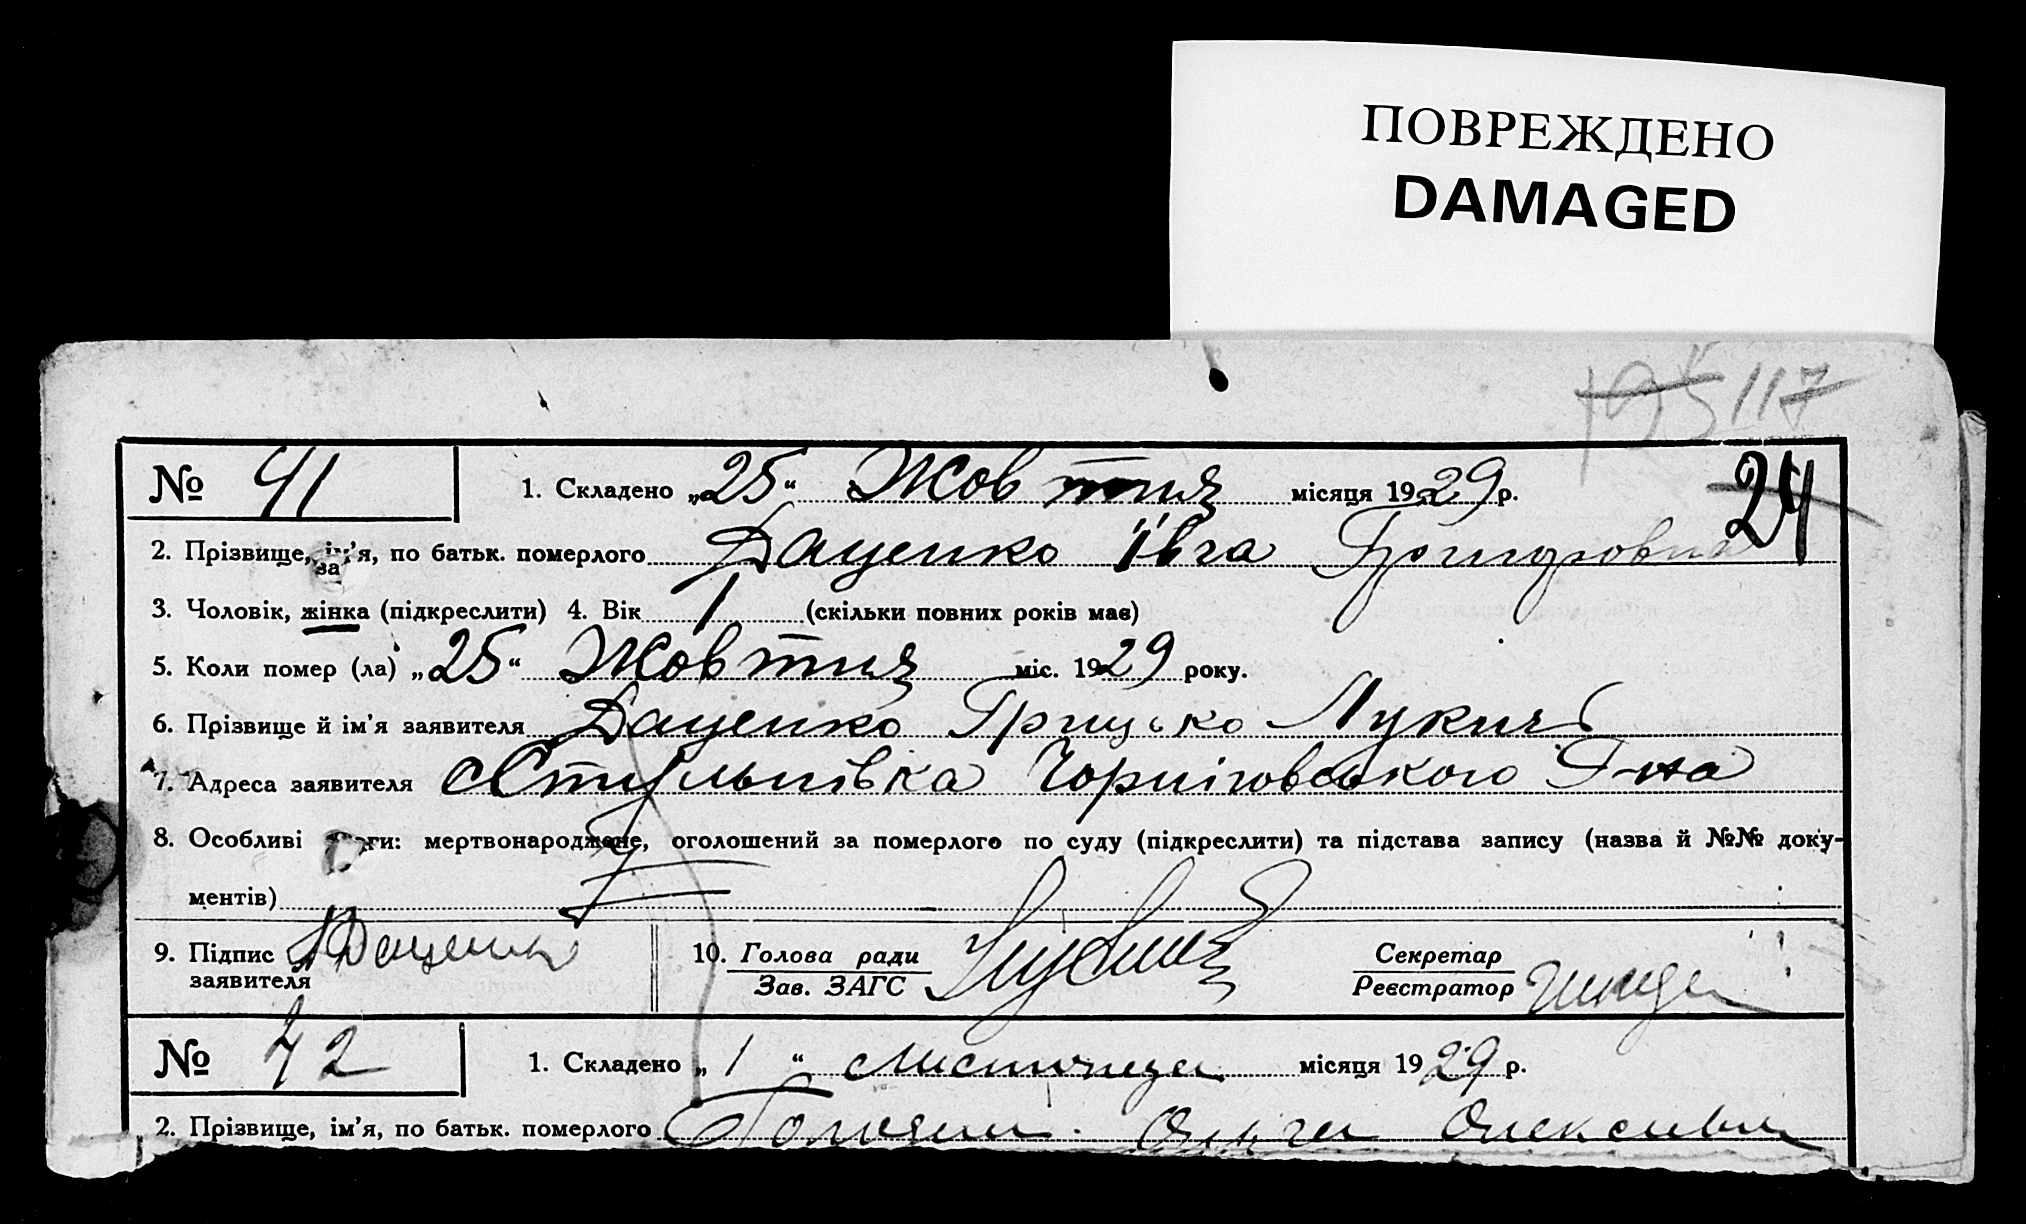 ПОВРЕЖДЕНО
DAMAGED
117
24
№ 41 1. Складено „25“ Жовтня місяця 1929 р.
2. Прізвище, ім’я, по батьк. померлого Даценко Ївга Григоровна
за
3. Чоловік, жінка (підкреслити) 4. Вік 1 (скільки повних років має)
5. Коли помер (ла) „25“ Жовтня міс. 1929 року.
6. Прізвище й ім’я заявителя Даценко Грицько Лукич
7. Адреса заявителя Чорніговського Р-на
8. Особливі мертвонароджене, оголошений за померлого по суду (підкреслити) та підстава запису (назва й №№ доку-
ментів)
9. Підпис заявителя Даценко 10. Голова ради Зав. ЗАГС Секретар Реєстратор
№ 42 1. Складено „1“ Листопада місяця 1929 р.
2. Прізвище, ім’я, по батьк. померлого Ольга Олексивна